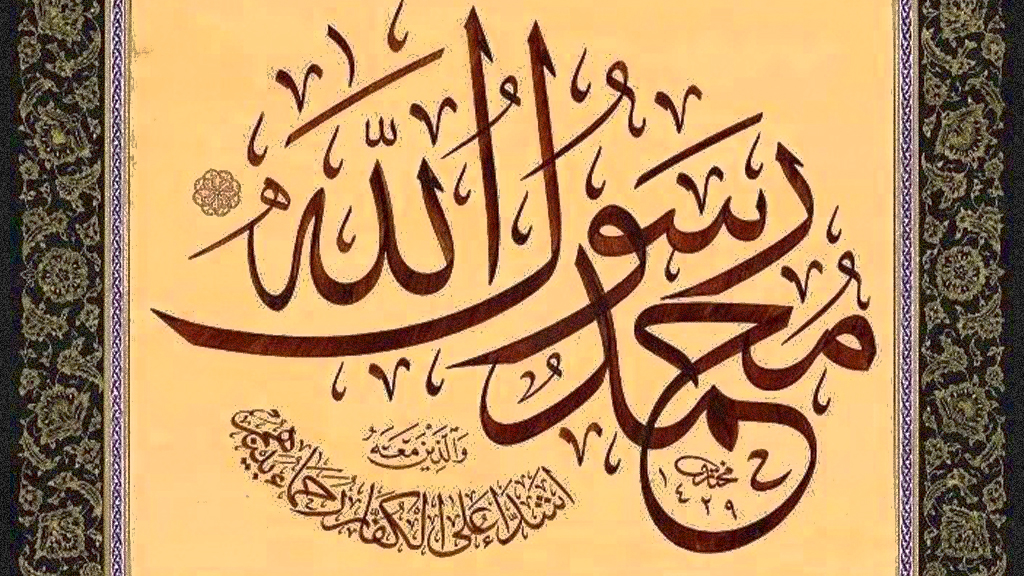 مُحَمَّدٌ رَسُولُ اللّٰهِ
وَالَّذِينَ مَعَهُ
أَشِدَّاءُ عَلَى الْكُفَّارِ رُحَمَاءُ بَيْنَهُمْ
١٤٢٩